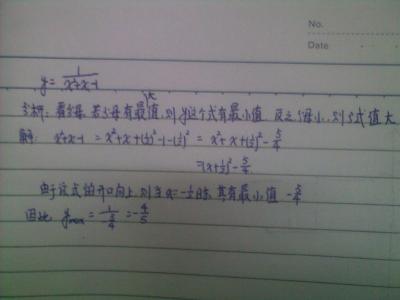 No.
Date
y = 1/(x²+x-1)
分析: 看分母, 若分母有最大值, 则y这个式有最小值 反之分母小, 则分式值大
解: x²+x-1 = x²+x+(½)²-1-(½)² = x²+x+(½)²-5/4
=(x+½)²-5/4
由于这式的开口向上, 则当a=-½时, 其有最小值 -5/4
因此 y max = 1/(-5/4) = -4/5